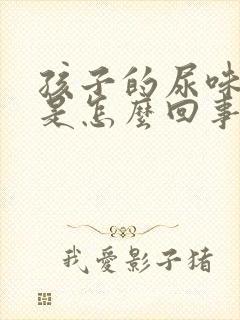 孩子的尿味
是怎麼回事
我愛影子猪